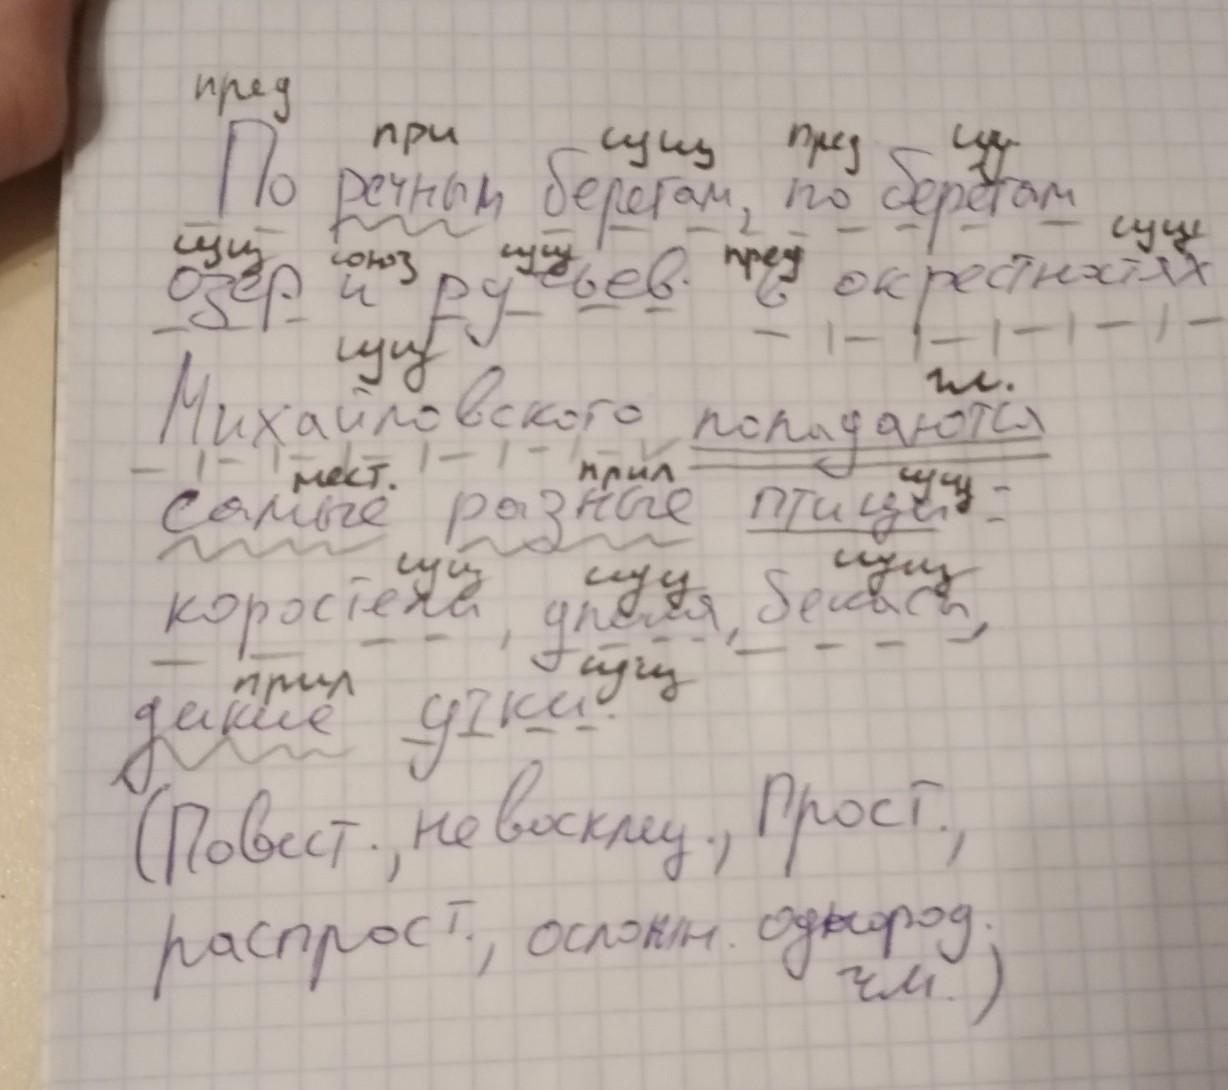 пред
при сущ пред сущ
По речным берегам, по берегам
сущ союз сущ пред сущ
озер и ручьев. в окрестностях
сущ гл.
Михайловского попадаются
мест. прил сущ
самые разные птицы:
сущ сущ сущ
коростели, дупеля, бекасы,
прил сущ
дикие утки.
(Повест., невосклиц., Прост.,
распрост., осложн. однород.
чл.)